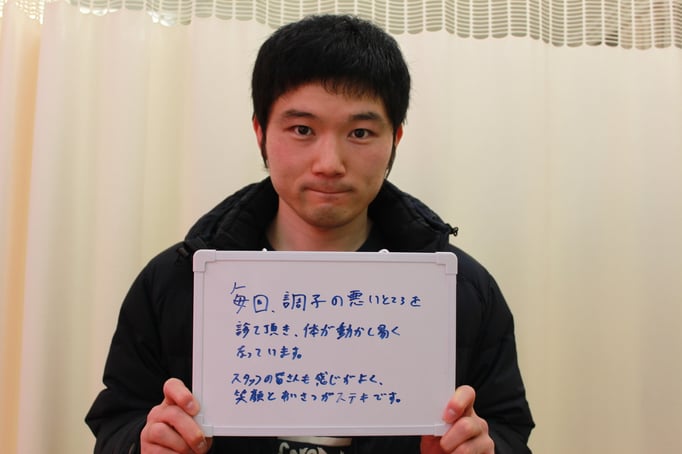 毎回、調子の悪いところを
診て頂き、体が動かし易く
なっています。
スタッフの皆さんも感じがよく、
笑顔とあいさつがステキです。